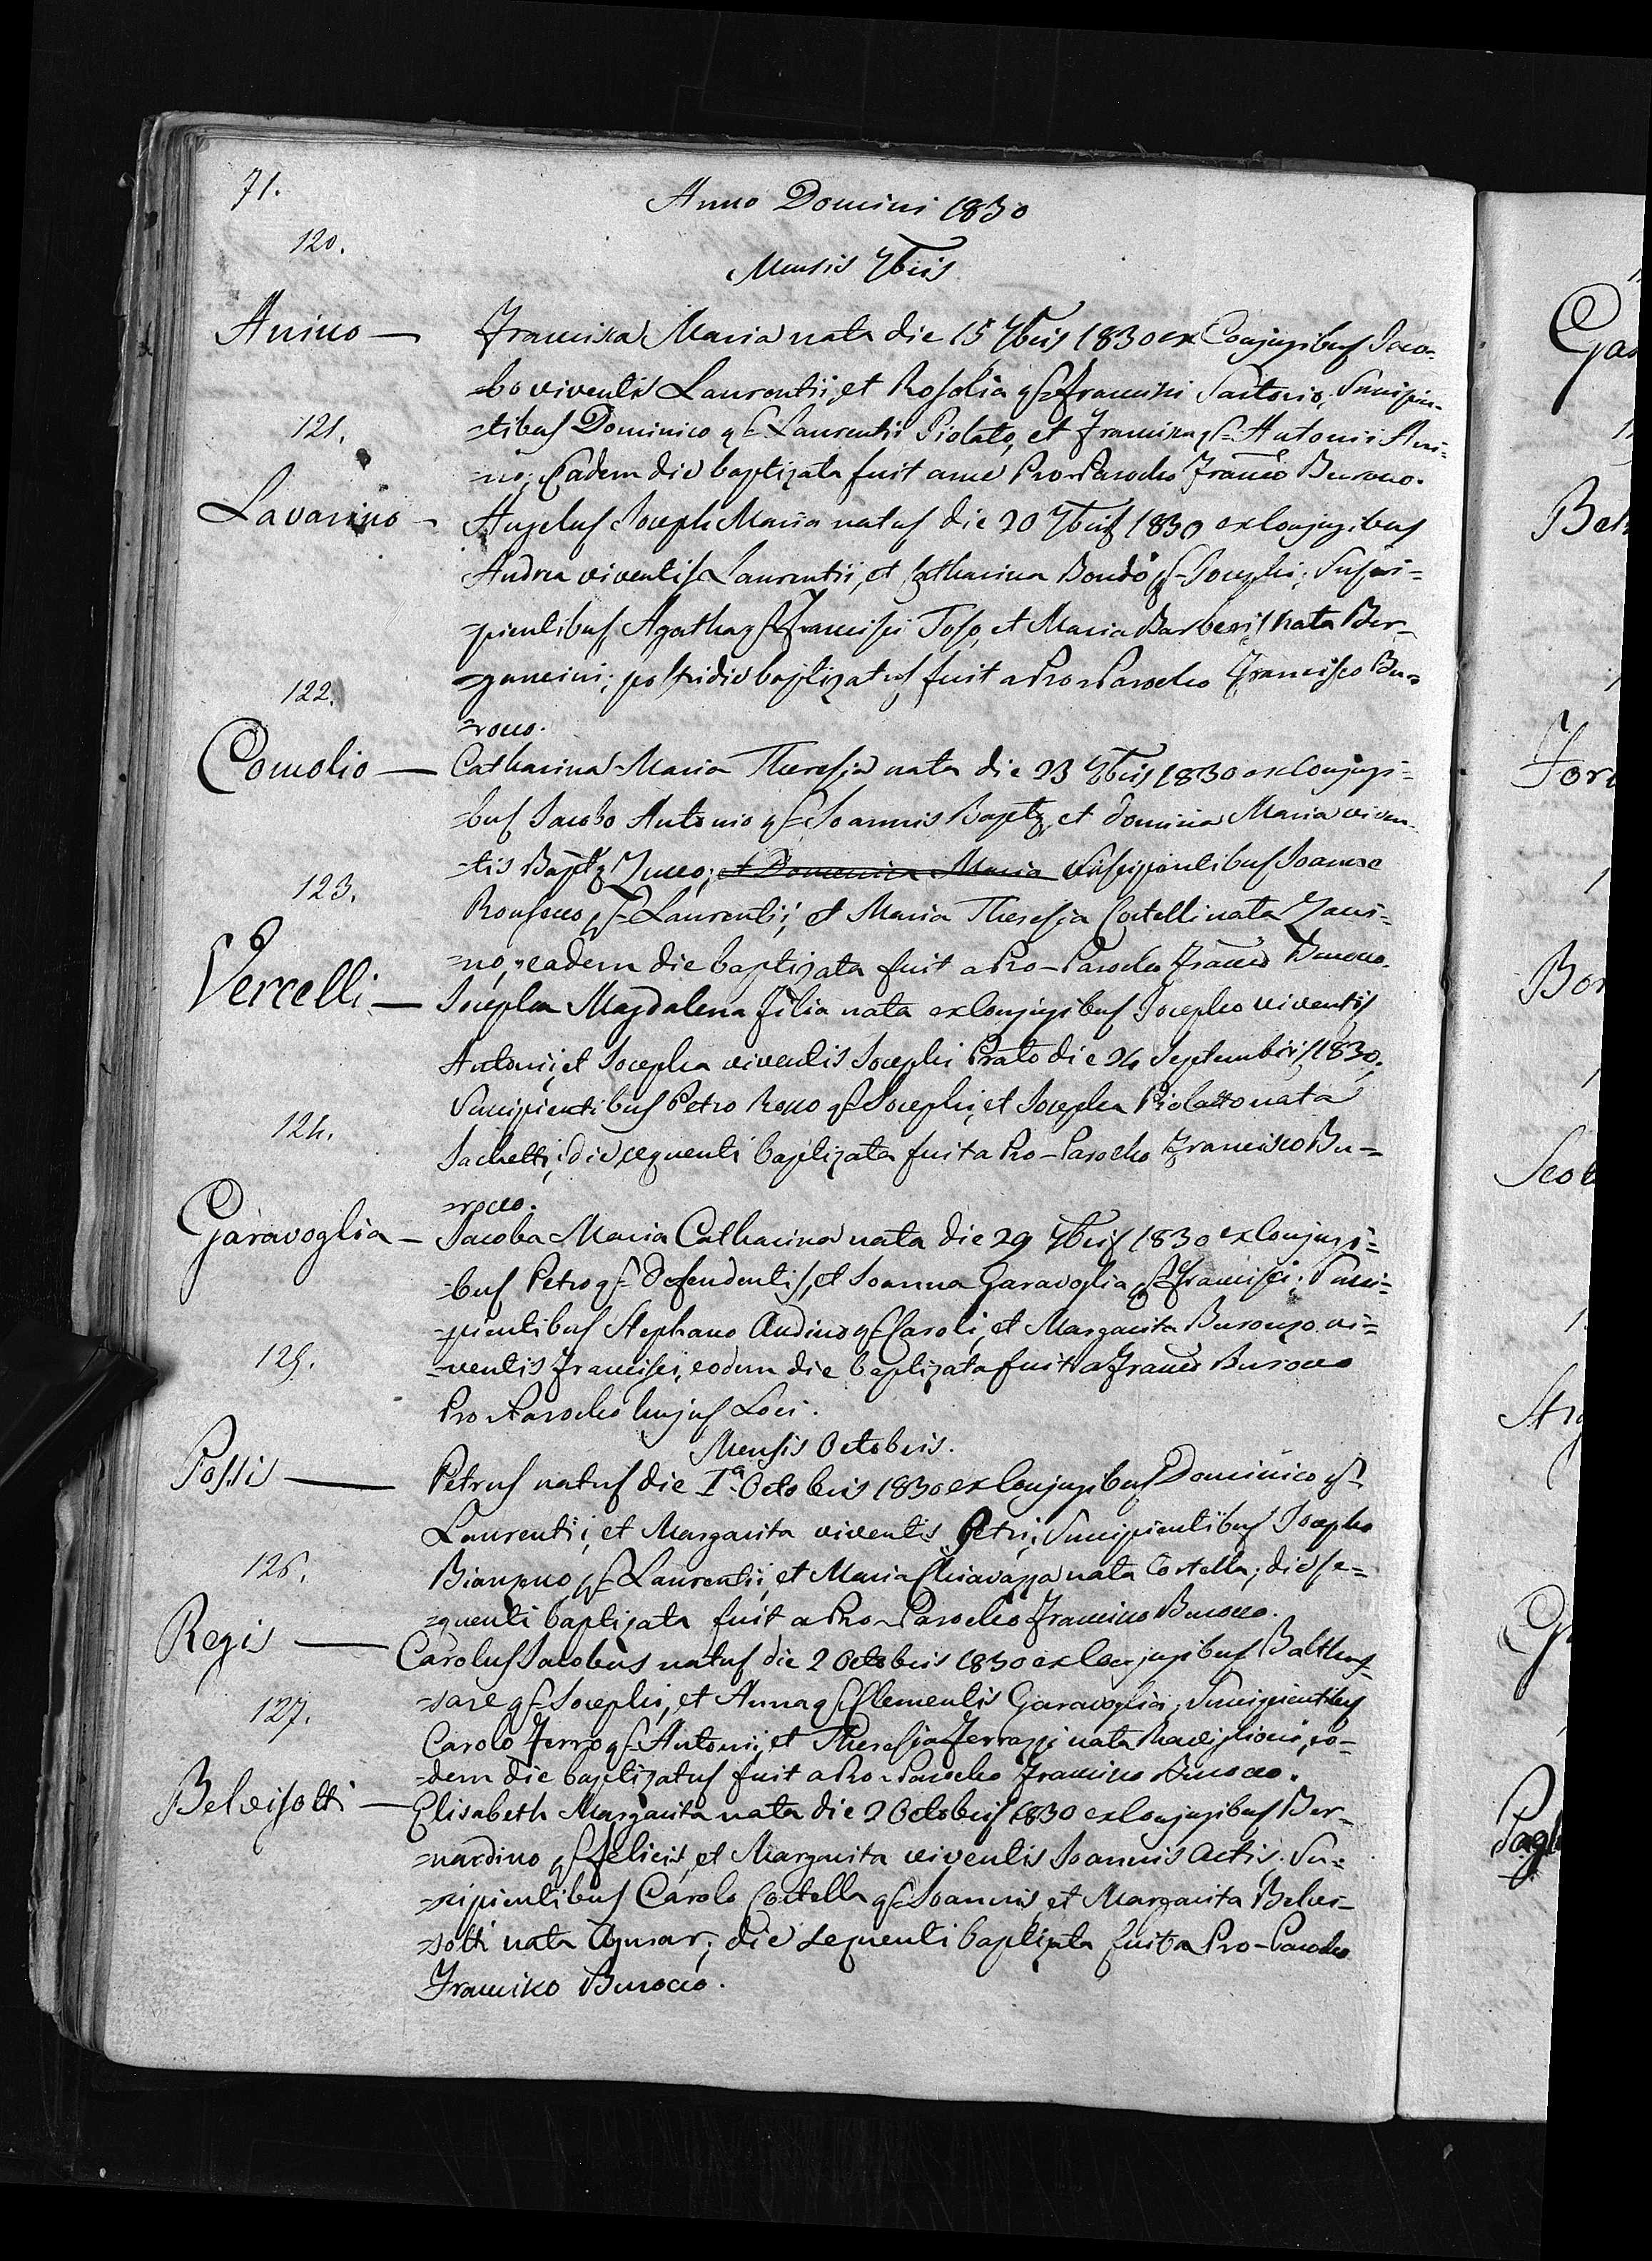 71.
Anno Domini 1830
120.
Mensis 7bris
Anino — Francisca Maria nata die 15 7bris 1830 ex Conjugibus Jaco-
-bo viventis Laurentii, et Rosolia qs= Francisci Sartorio; Suscipien-
121.
-tibus Dominico qs= Laurentii Piolato, et Francisca qs= Antonii Ani-
-no; Eadem die baptizata fuit a me Pro-Parocho Franco Burocco.
Lavarino - Angelus Joseph Maria natus die 20 7bris 1830 ex Conjugibus
Andrea viventis Laurentii, et Catharina Bondo qs= Josephi; Susci=
=pientibus Agatha qs= Francisci Toso, et Maria Barberis nata Ber-
122.
=gancini; postridie baptizatus fuit a Pro-Parocho Francisco Bu=
=rocco.
Comolio — Catharina Maria Theresia nata die 23 7bris 1830 ex Conjugi=
-bus Jacobo Antonio qs= Joannis Baptæ, et Domina Maria viven-
-tis Baptæ; et Domenica Maria Suscipientibus Joanne
123.
Ronsecco qs= Laurentii, et Maria Theresia Cortelli nata Zani=
=no, eadem die baptizata fuit a Pro-Parocho Franco Burocco.
Vercelli — Josepha Magdalena filia nata ex Conjugibus Josepho viventis
Antonii, et Josepha viventis Josephi Prato die 24 Septembris 1830;
Suscipientibus Petro Rocco qs= Josephi, et Josepha Piolatto nata
124.
Sachetti; die sequenti baptizata fuit a Pro-Parocho Francisco Bu-=
=rocco.
Garavoglia — Jacoba Maria Catharina nata die 29 7bris 1830 ex Conjugi=
-bus Petro qs= Defendentis, et Joanna Garavoglia qs= Francisci; Susci=
=pientibus Stephano Audino qs= Caroli, et Margarita Buronzo vi=
125.
-ventis Francisci, eodem die baptizata fuit a Franco Burocco
Pro Parocho hujus Loci.
Mensis Octobris.
Possis — Petrus natus die I.a Octobris 1830 ex Conjugibus Dominico qs=
Laurentii, et Margarita viventis Petri; Suscipientibus Josepho
126.
qs= Laurentii, et Maria Chiavazza nata Cortella; die se=
=quenti baptizata fuit a Pro-Parocho Francisco Burocco.
Regis — Carolus Jacobus natus die 2 Octobris 1830 ex Conjugibus Baltha-
127.
=sare qs= Josephi, et Anna qs= Clementis Garavoglia; Suscipientibus
Carolo Ferro qs= Antonii, et Theresia nata eo-
-dem die baptizatus fuit a Pro-Parocho Francisco Burocco.
Belvisotti — Elisabeth Margarita nata die 2 Octobris 1830 ex Conjugibus Ber-
=nardino qs= Felicis, et Margarita viventis Joannis Actis. Su=
=scipientibus Carolo Cortella qs= Joannis, et Margarita Belvi-
=sotti nata; die sequenti baptizata fuit a Pro-Parocho
Francisco Burocco.